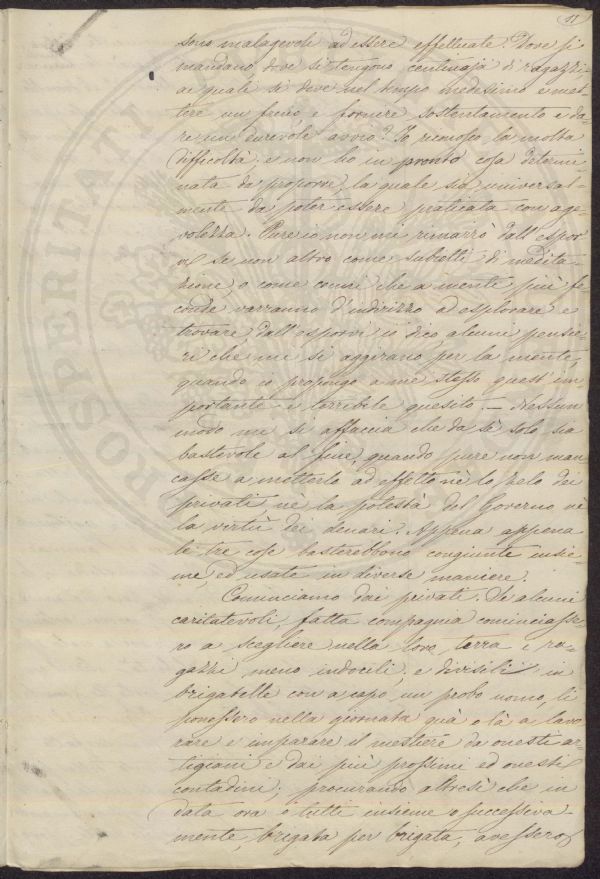 11
sono malagevoli ad essere effettuate. Dove si
mandano, dove si tengono centinaja di ragazzi,
ai quali si deve nel tempo medesimo e met-
tere un freno, e fornire sostentamento e da-
re un durevole avvio? Io riconosco la molta
difficoltà e non ho in pronto cosa determi-
nata da proporre, la quale sia universal-
mente da poter essere praticata con age-
volezza. Pure io non mi rimarrò dall'espor-
vi se non altro come subietti di medita-
zione, o come cenni che a mente più fe-
conde varranno d'indirizzo ad esplorare e
trovare, dall'esporvi, io dico, alcuni pensie-
ri che mi si aggirano per la mente,
quando io propongo a me stesso quest'im-
portante e terribile quesito. — Nessun
modo mi si affaccia che da sè solo sia
bastevole al fine, quando pure non man-
casse a metterlo ad effetto nè lo zelo dei
privati, nè la potestà del Governo nè
la virtù dei denari. Appena appena
le tre cose basterebbono congiunte insie-
me, ed usate in diverse maniere.
Cominciamo dai privati. Se alcuni
caritatevoli, fatta compagnia cominciasse-
ro a scegliere nella loro terra i ra-
gazzi meno indocili, e divisili in
brigatelle con a capo un probo uomo, li
ponessero nella giornata quà e là a lavo-
rare e imparare il mestiere da onesti ar-
tigiani e dai più prossimi ed onesti
contadini; procurando altresì che in
data ora o tutti insieme o successiva-
mente, brigata per brigata, avessero
PROSPERITATI